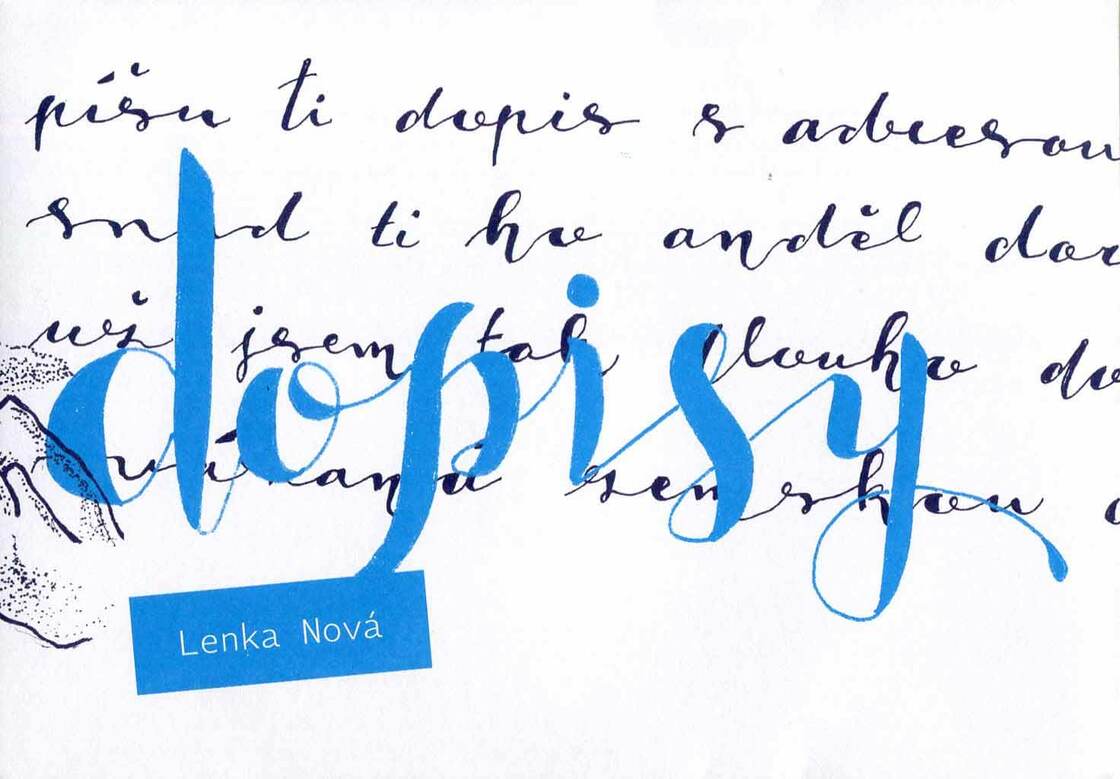 píšu ti dopis s adresou
snad ti ho anděl
už jsem tak dlouho
dopisy
Lenka Nová